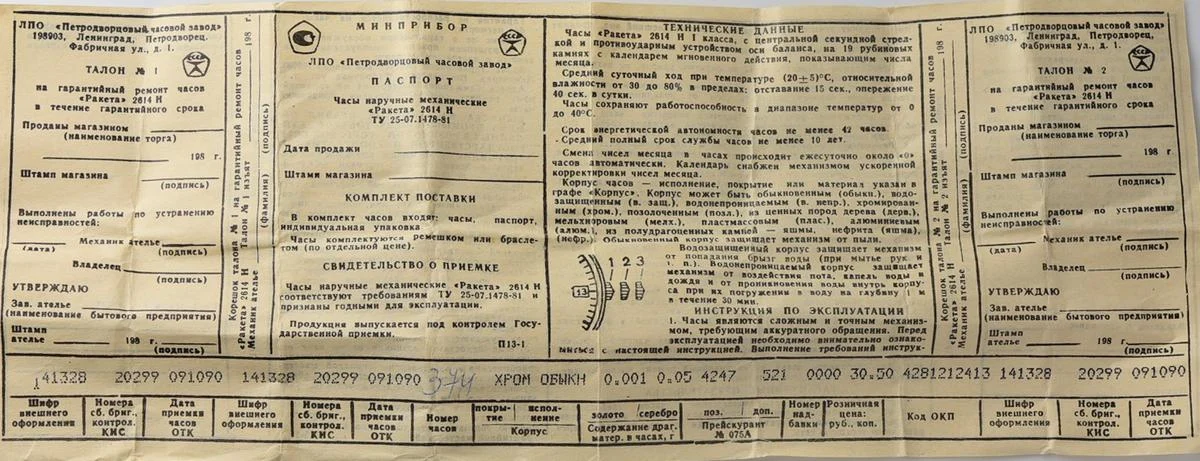 ЛПО «Петродворцовый часовой завод»
198903, Ленинград, Петродворец,
Фабричная ул., д. 1.
ТАЛОН № 1
на гарантийный ремонт часов
«Ракета» 2614 Н
в течение гарантийного срока
Проданы магазином
(наименование торга)
198 г.
Штамп магазина
(подпись)
Выполнены работы по устранению
неисправностей:
Механик ателье
(дата) (подпись)
Владелец
(подпись)
УТВЕРЖДАЮ
Зав. ателье
(наименование бытового предприятия)
Штамп
ателье 198 г.
(подпись)
Корешок талона № 1 на гарантийный ремонт часов
«Ракета» 2614 Н Талон № 1 изъят 198 г.
Механик ателье (фамилия) (подпись)
МИНПРИБОР
ЛПО «Петродворцовый часовой завод»
ПАСПОРТ
Часы наручные механические
«Ракета» 2614 Н
ТУ 25-07.1478-81
Дата продажи
Штамп магазина
КОМПЛЕКТ ПОСТАВКИ
В комплект часов входят: часы, паспорт,
индивидуальная упаковка
Часы комплектуются ремешком или брасле-
том (по отдельной цене).
СВИДЕТЕЛЬСТВО О ПРИЕМКЕ
Часы наручные механические «Ракета» 2614 Н
соответствуют требованиям ТУ 25-07.1478-81 и
признаны годными для эксплуатации.
Продукция выпускается под контролем Госу-
дарственной приемки.
П13-1
ТЕХНИЧЕСКИЕ ДАННЫЕ
Часы «Ракета» 2614 Н I класса, с центральной секундной стрел-
кой и противоударным устройством оси баланса, на 19 рубиновых
камнях с календарем мгновенного действия, показывающим числа
месяца.
Средний суточный ход при температуре (20±5)°С, относительной
влажности от 30 до 80% в пределах: отставание 15 сек., опережение
40 сек. в сутки.
Часы сохраняют работоспособность в диапазоне температур от 0
до 40°С.
Срок энергетической автономности часов не менее 42 часов.
Средний полный срок службы часов не менее 10 лет.
Смена чисел месяца в часах происходит ежесуточно около «0»
часов автоматически. Календарь снабжен механизмом ускоренной
корректировки чисел месяца.
Корпус часов — исполнение, покрытие или материал указан в
графе «Корпус». Корпус может быть обыкновенным (обыкн.), водо-
защищенным (в. защ.), водонепроницаемым (в. непр.), хромирован-
ным (хром.), позолоченным (позл.), из ценных пород дерева (дерв.),
мельхиоровым (мелх.), пластмассовым (плас.), алюминиевым
(алюм.), из полудрагоценных камней — яшмы, нефрита (яшма),
(нефр.). Обыкновенный корпус защищает механизм от пыли.
Водозащищенный корпус защищает механизм
от попадания брызг воды (при мытье рук и
т. п.). Водонепроницаемый корпус защищает
механизм от воздействия пота, капель воды и
дождя и от проникновения воды внутрь корпу-
са при их погружении в воду на глубину 1 м
в течение 30 мин.
1 2 3
13
ИНСТРУКЦИЯ ПО ЭКСПЛУАТАЦИИ
1. Часы являются сложным и точным механиз-
мом, требующим аккуратного обращения. Перед
эксплуатацией необходимо внимательно ознако-
миться с настоящей инструкцией. Выполнение требований инструк-
Корешок талона № 2 на гарантийный ремонт часов
«Ракета» 2614 Н Талон № 2 изъят 198 г.
Механик ателье (фамилия) (подпись)
ЛПО «Петродворцовый часовой завод»
198903, Ленинград, Петродворец,
Фабричная ул., д. 1.
ТАЛОН № 2
на гарантийный ремонт часов
«Ракета» 2614 Н
в течение гарантийного срока
Проданы магазином
(наименование торга)
198 г.
Штамп магазина
(подпись)
Выполнены работы по устранению
неисправностей:
Механик ателье
(дата) (подпись)
Владелец
(подпись)
УТВЕРЖДАЮ
Зав. ателье
(наименование бытового предприятия)
Штамп
ателье 198 г.
(подпись)
141328 20299 091090 141328 20299 091090 374 ХРОМ ОБЫКН 0.001 0.05 4247 521 0000 30.50 4281212413 141328 20299 091090
Шифр внешнего оформления
Номера сб. бриг., контрол. КИС
Дата приемки часов ОТК
Шифр внешнего оформления
Номера сб. бриг., контрол. КИС
Дата приемки часов ОТК
Номер часов
покры-тие испол-нение
Корпус
золото серебро
Содержание драг. матер. в часах, г
поз. доп.
Прейскурант № 075А
Номер над-бавки
Розничная цена: руб., коп.
Код ОКП
Шифр внешнего оформления
Номера сб. бриг., контрол. КИС
Дата приемки часов ОТК